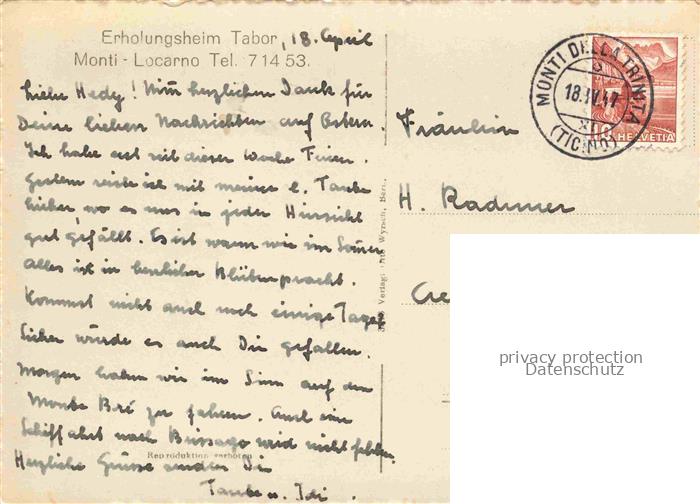 Erholungsheim Tabor, 18. April
Monti - Locarno Tel. 7 14 53.
Liebe Hedy! Nimm herzlichen Dank für
Deine lieben Nachrichten auf Ostern.
Ich habe erst seit dieser Woche Ferien.
Gestern reiste ich mit meiner l. Tante
hieher, wo es uns in jeder Hinsicht
gut gefällt. Es ist warm wie im Sommer
Alles ist in herrlicher Blütenpracht.
Kommst nicht auch noch einige Tage?
Sicher würde es auch Dir gefallen.
Morgen haben wir im Sinn auf den
Monte Brè zu fahren. Auch eine
Schiffahrt nach Brissago wird nicht fehlen.
Reproduktion verboten
Herzliche Grüsse senden Dir
Tante u. Idi.
Verlag: Otto Wyrsch, Bern.
MONTI DELLA TRINITA
18.IV.47
(TICINO)
HELVETIA
Fräulein
H. Radimer
privacy protection
Datenschutz